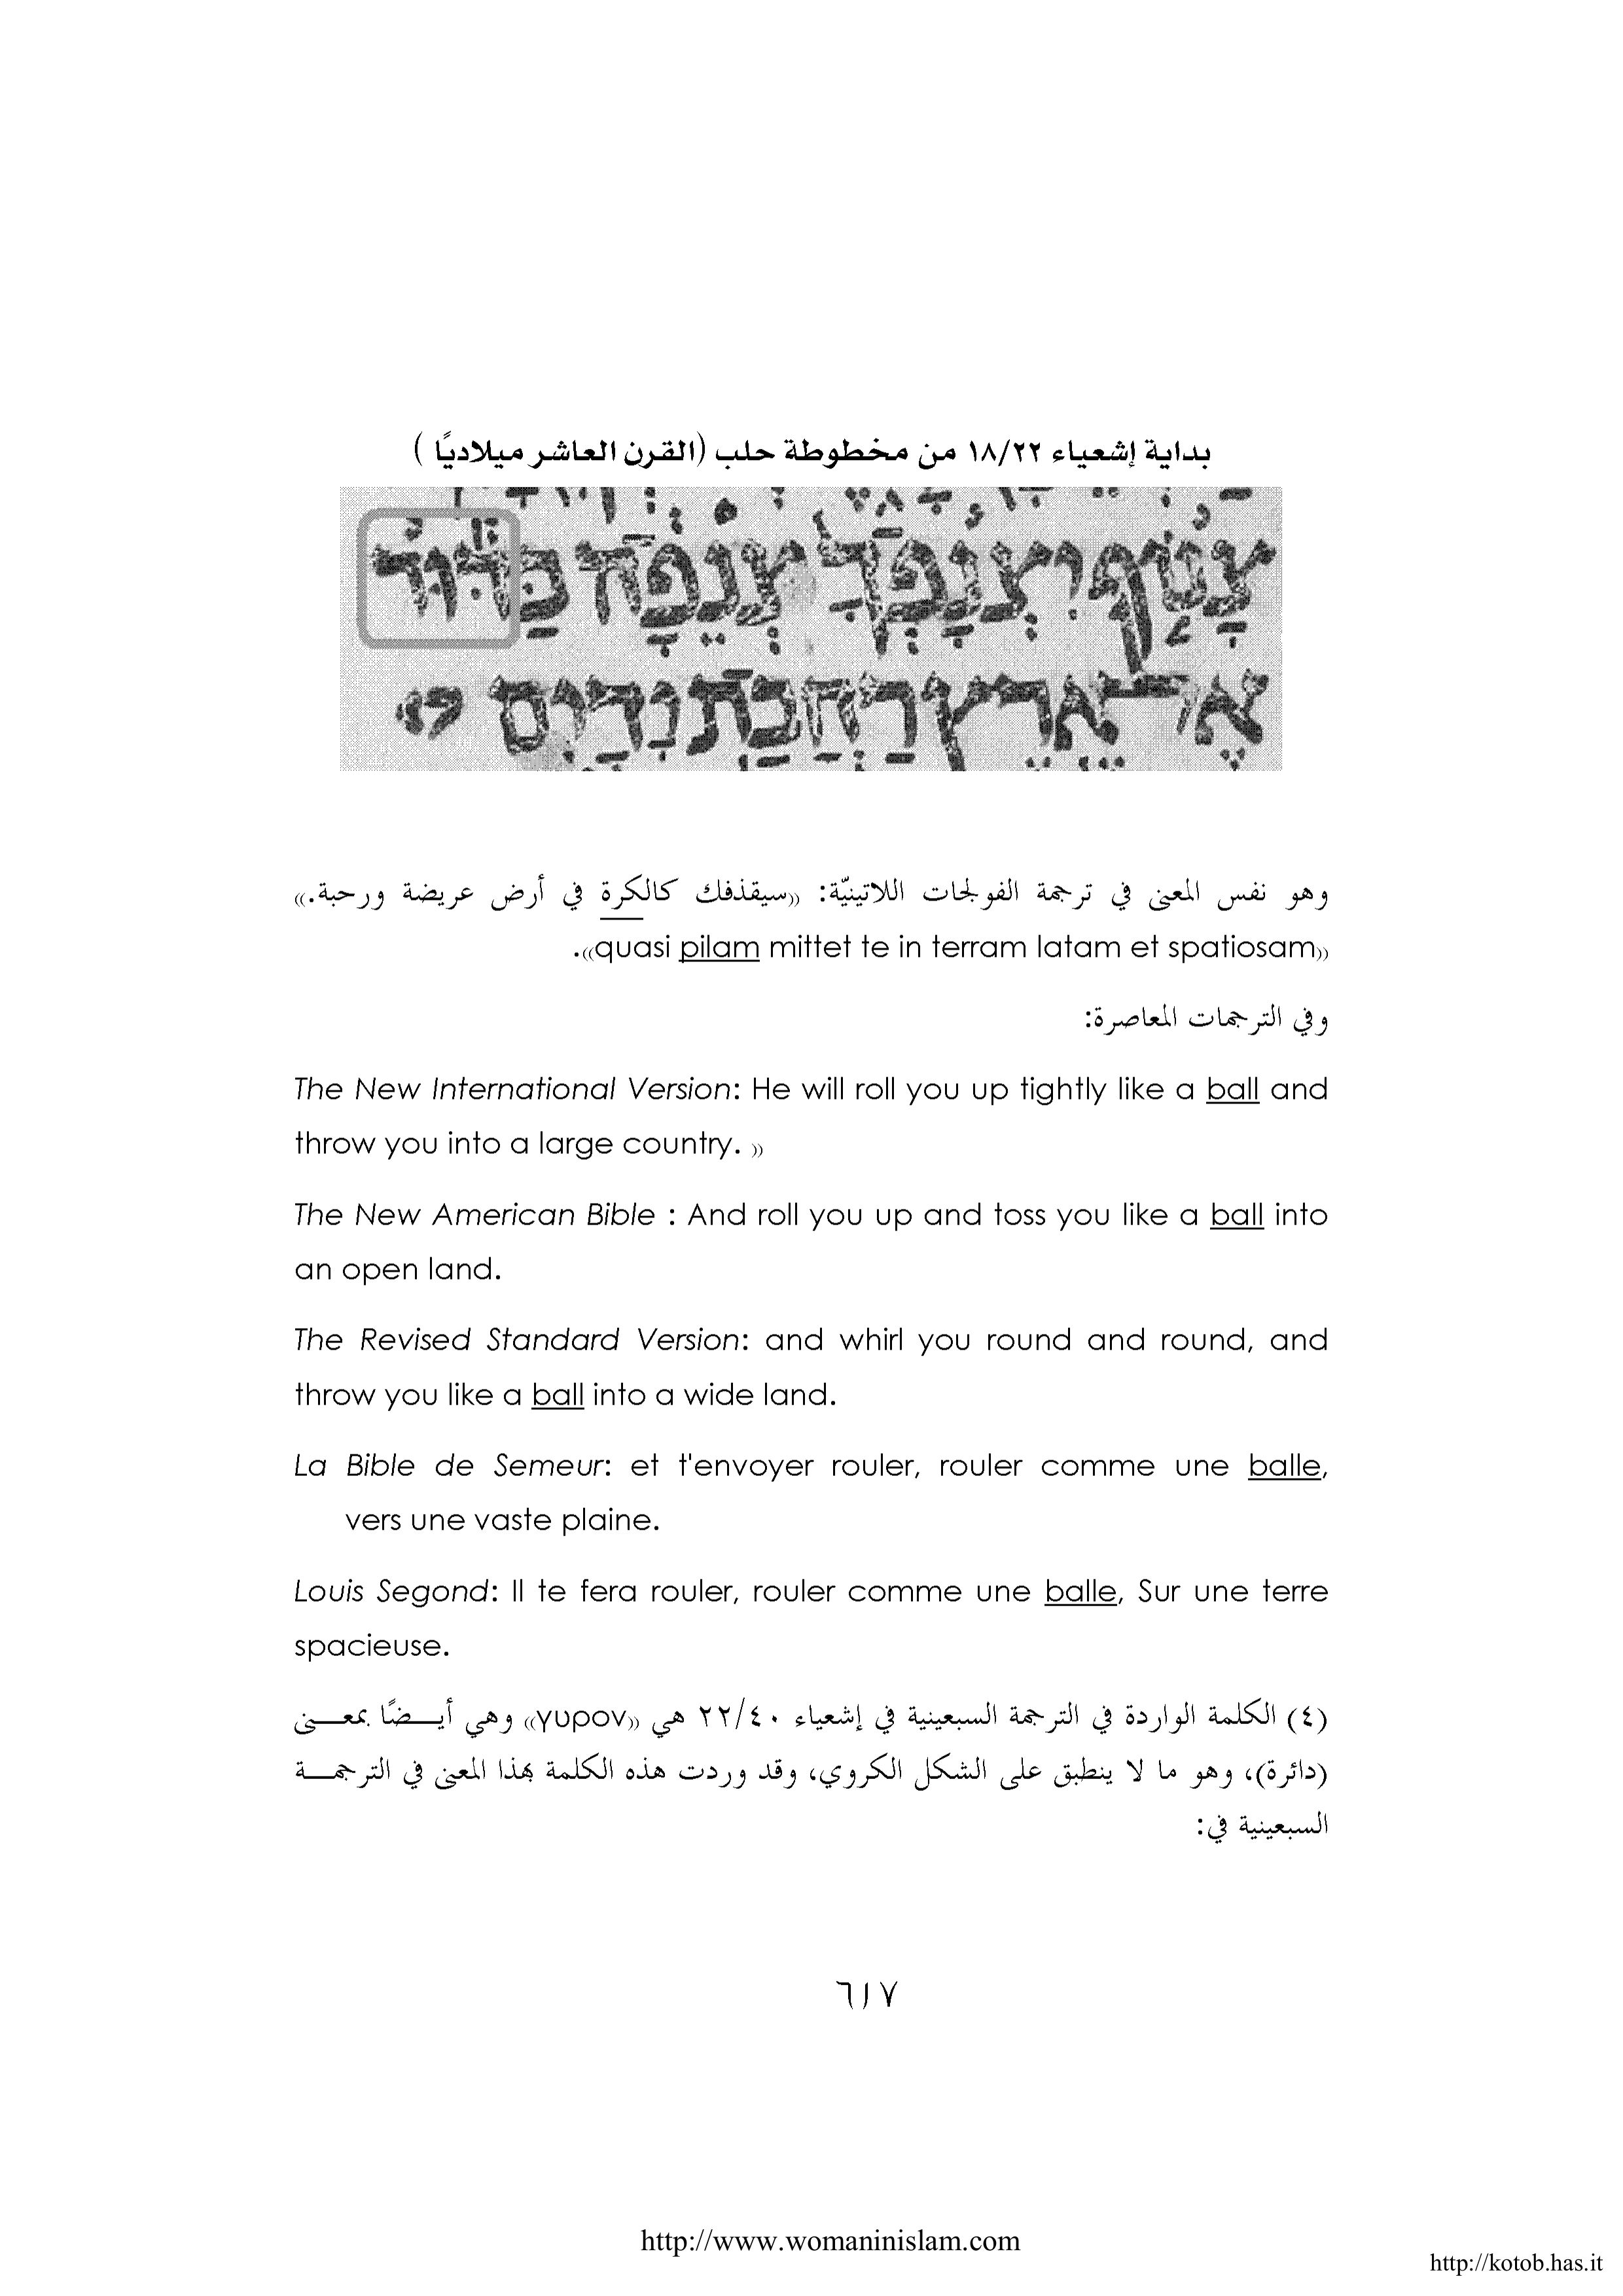 بداية إشعياء ١٨/٢٢ من مخطوطة حلب (القرن العاشر ميلاديًا )
צָנ֤וֹף יִצְנׇפְךָ֙ צְנֵפָ֔ה כַּדּ֕וּר
אֶל־אֶרֶץ רַחֲבַת יָדָיִם
وهو نفس المعنى في ترجمة الفولجات اللاتينيّة: ((سيقذفك كالكرة في أرض عريضة ورحبة.))
((quasi pilam mittet te in terram latam et spatiosam)).
وفي الترجمات المعاصرة:
The New International Version: He will roll you up tightly like a ball and
throw you into a large country. ))
The New American Bible : And roll you up and toss you like a ball into
an open land.
The Revised Standard Version: and whirl you round and round, and
throw you like a ball into a wide land.
La Bible de Semeur: et t'envoyer rouler, rouler comme une balle,
vers une vaste plaine.
Louis Segond: Il te fera rouler, rouler comme une balle, Sur une terre
spacieuse.
(٤) الكلمة الواردة في الترجمة السبعينية في إشعياء ٢٢/٤٠ هي ((γυρον)) وهي أيـــضًا بمعـــنى
(دائرة)، وهو ما لا ينطبق على الشكل الكروي، وقد وردت هذه الكلمة بهذا المعنى في الترجمـــة
السبعينية في:
٦١٧
http://www.womaninislam.com
http://kotob.has.it